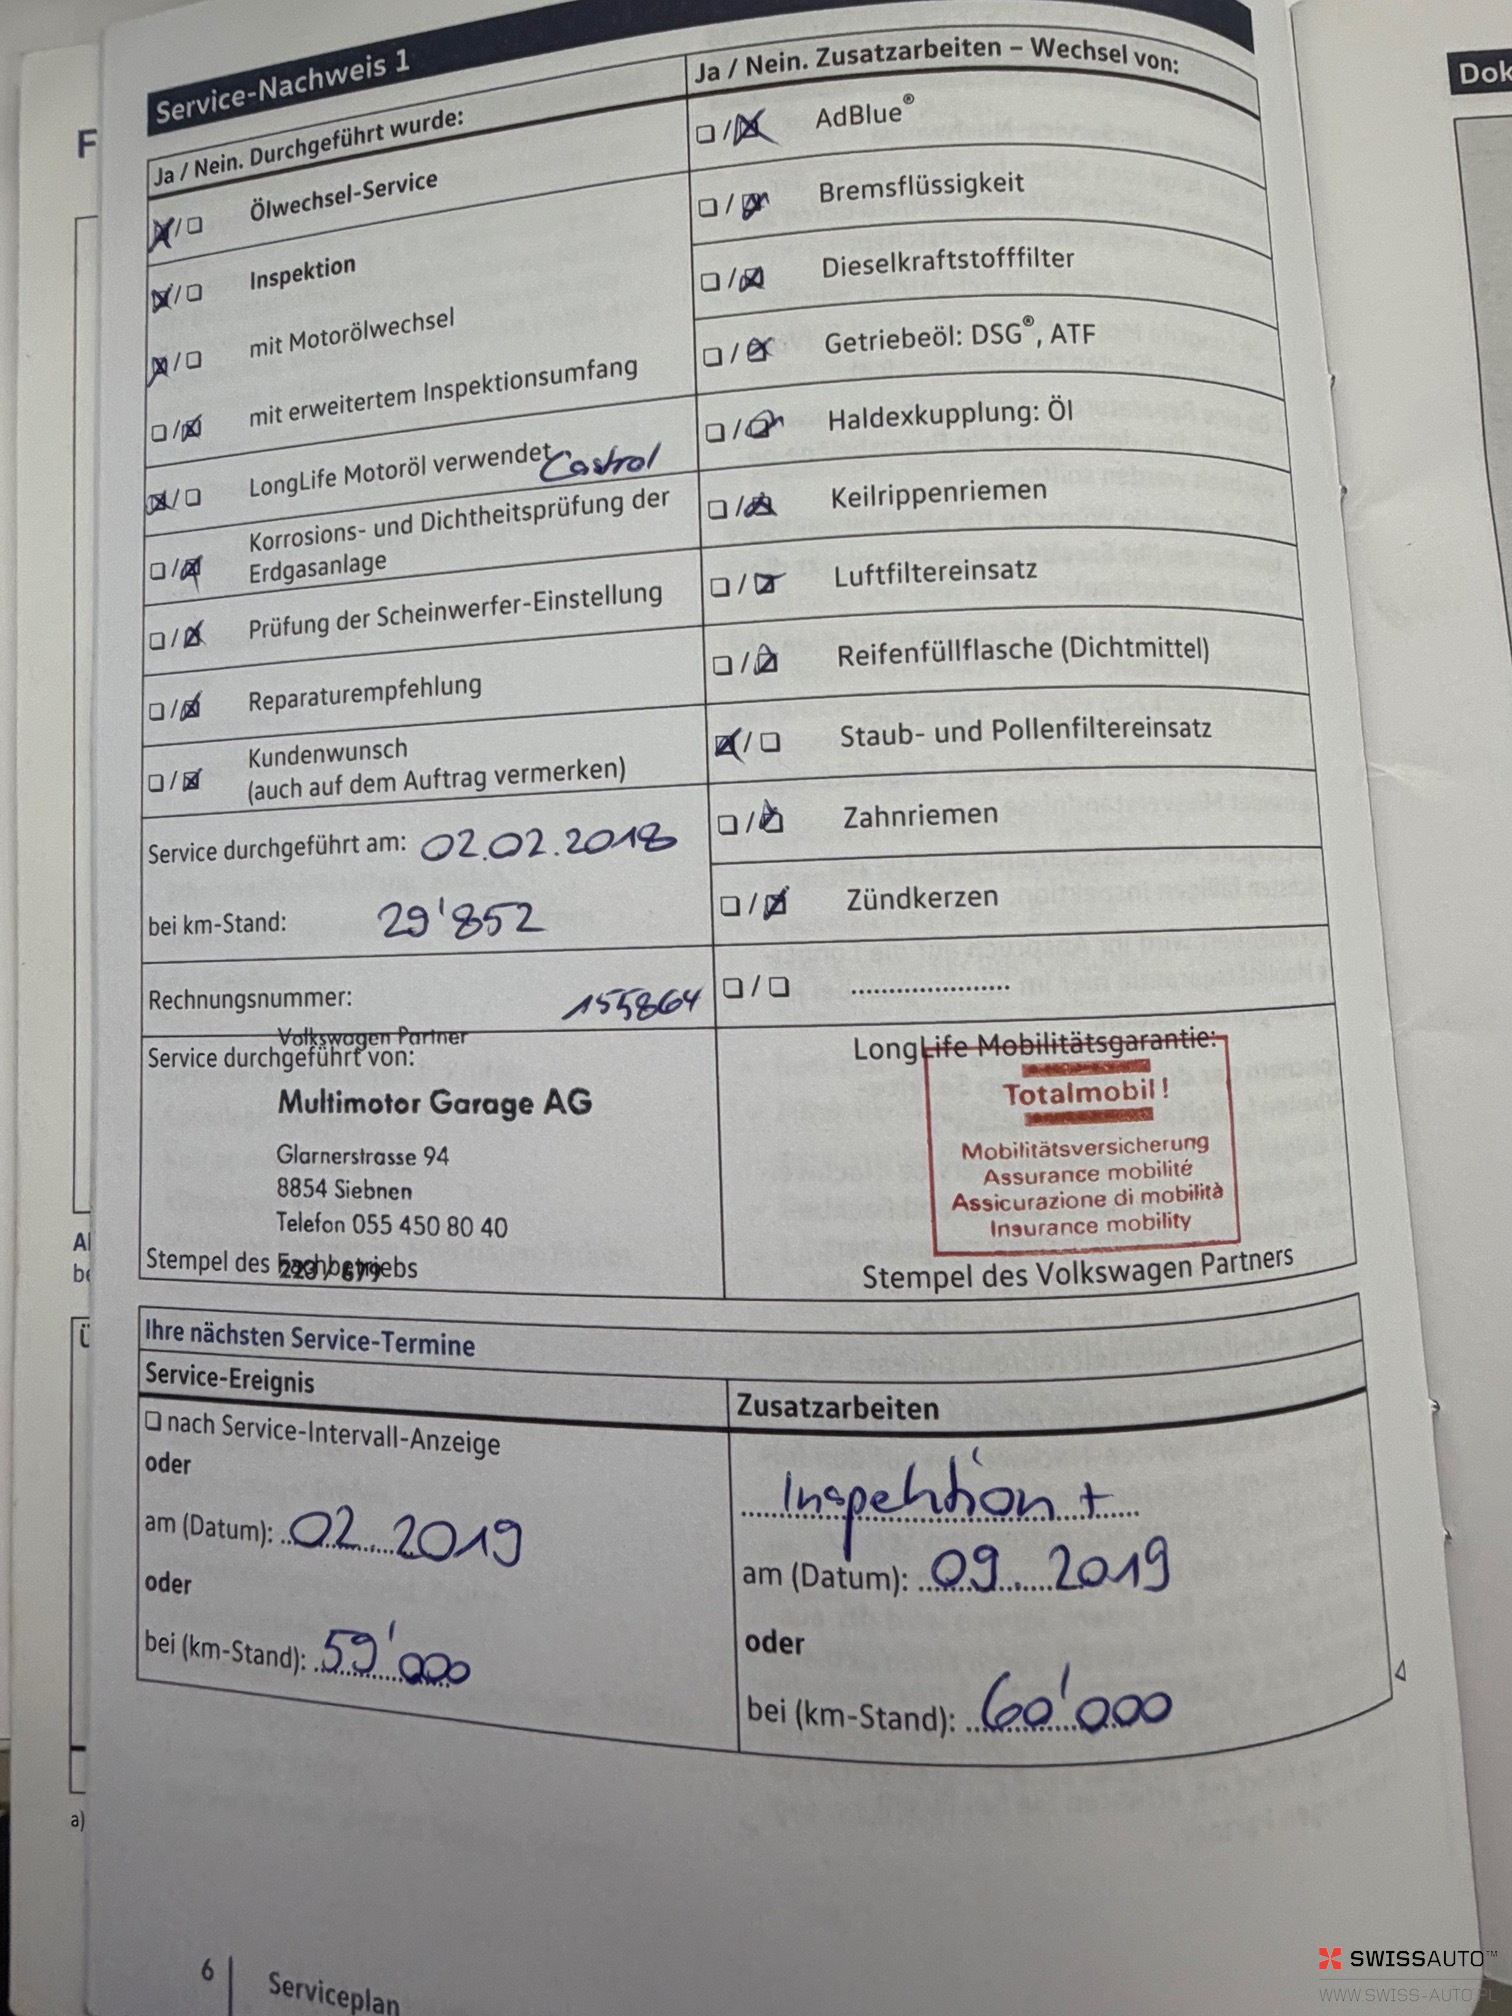 Service-Nachweis 1
Ja / Nein. Durchgeführt wurde:
Ölwechsel-Service
Inspektion
mit Motorölwechsel
mit erweitertem Inspektionsumfang
LongLife Motoröl verwendet Castrol
Korrosions- und Dichtheitsprüfung der
Erdgasanlage
Prüfung der Scheinwerfer-Einstellung
Reparaturempfehlung
Kundenwunsch
(auch auf dem Auftrag vermerken)
Service durchgeführt am: 02.02.2018
bei km-Stand: 29'852
Rechnungsnummer: 155864
Volkswagen Partner
Service durchgeführt von:
Multimotor Garage AG
Glarnerstrasse 94
8854 Siebnen
Telefon 055 450 80 40
Stempel des Fachbetriebs
Ja / Nein. Zusatzarbeiten – Wechsel von:
AdBlue®
Bremsflüssigkeit
Dieselkraftstofffilter
Getriebeöl: DSG®, ATF
Haldexkupplung: Öl
Keilrippenriemen
Luftfiltereinsatz
Reifenfüllflasche (Dichtmittel)
Staub- und Pollenfiltereinsatz
Zahnriemen
Zündkerzen
LongLife Mobilitätsgarantie:
Totalmobil!
Mobilitätsversicherung
Assurance mobilité
Assicurazione di mobilità
Insurance mobility
Stempel des Volkswagen Partners
Ihre nächsten Service-Termine
Service-Ereignis
nach Service-Intervall-Anzeige
oder
am (Datum): 02 2019
oder
bei (km-Stand): 59'000
Zusatzarbeiten
Inspektion +
am (Datum): 09 2019
oder
bei (km-Stand): 60'000
6 Serviceplan
Dok
F
Ü
a)
SWISSAUTO™
WWW.SWISS-AUTO.PL